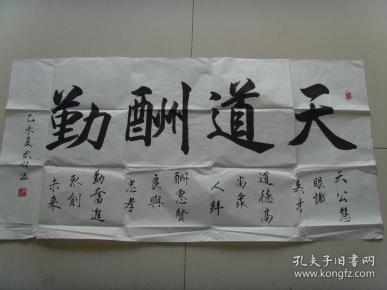 天道酬勤
天公慧
眼識
英才
道德高
尚眾
人拜
酬惠賢
良與
忠孝
勤奮進
取創
未來
乙未夏
孔夫子旧书网
www.kongfz.com